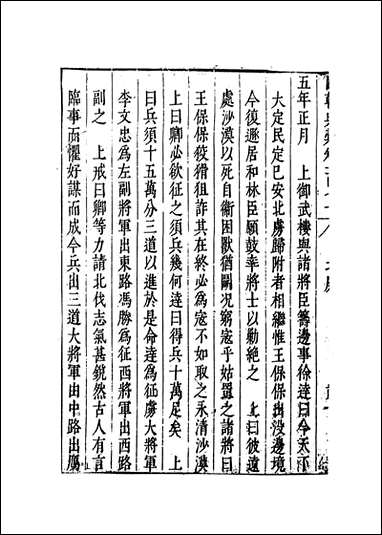 五年正月　上御武樓與諸將臣籌邊事徐達曰今天下
大定民定已安北虜歸附者相繼惟王保保出没邊境
今復遯居和林臣願鼓率將士以勦絶之　上曰彼遠
處沙漠以死自衛困獸猶鬬况窮寇乎姑置之諸將曰
王保保狡猾狙詐其在終必為寇不如取之永清沙漠
上曰卿必欲征之須兵幾何達曰得兵十萬足矣　上
曰兵須十五萬分三道以進於是命達為征虜大將軍
李文忠為左副將軍出東路馮勝為征西將軍出西路
副之　上戒曰卿等力請北伐志氣甚銳然古人有言
臨事而懼好謀而成今兵出三道大將軍由中路出鴈